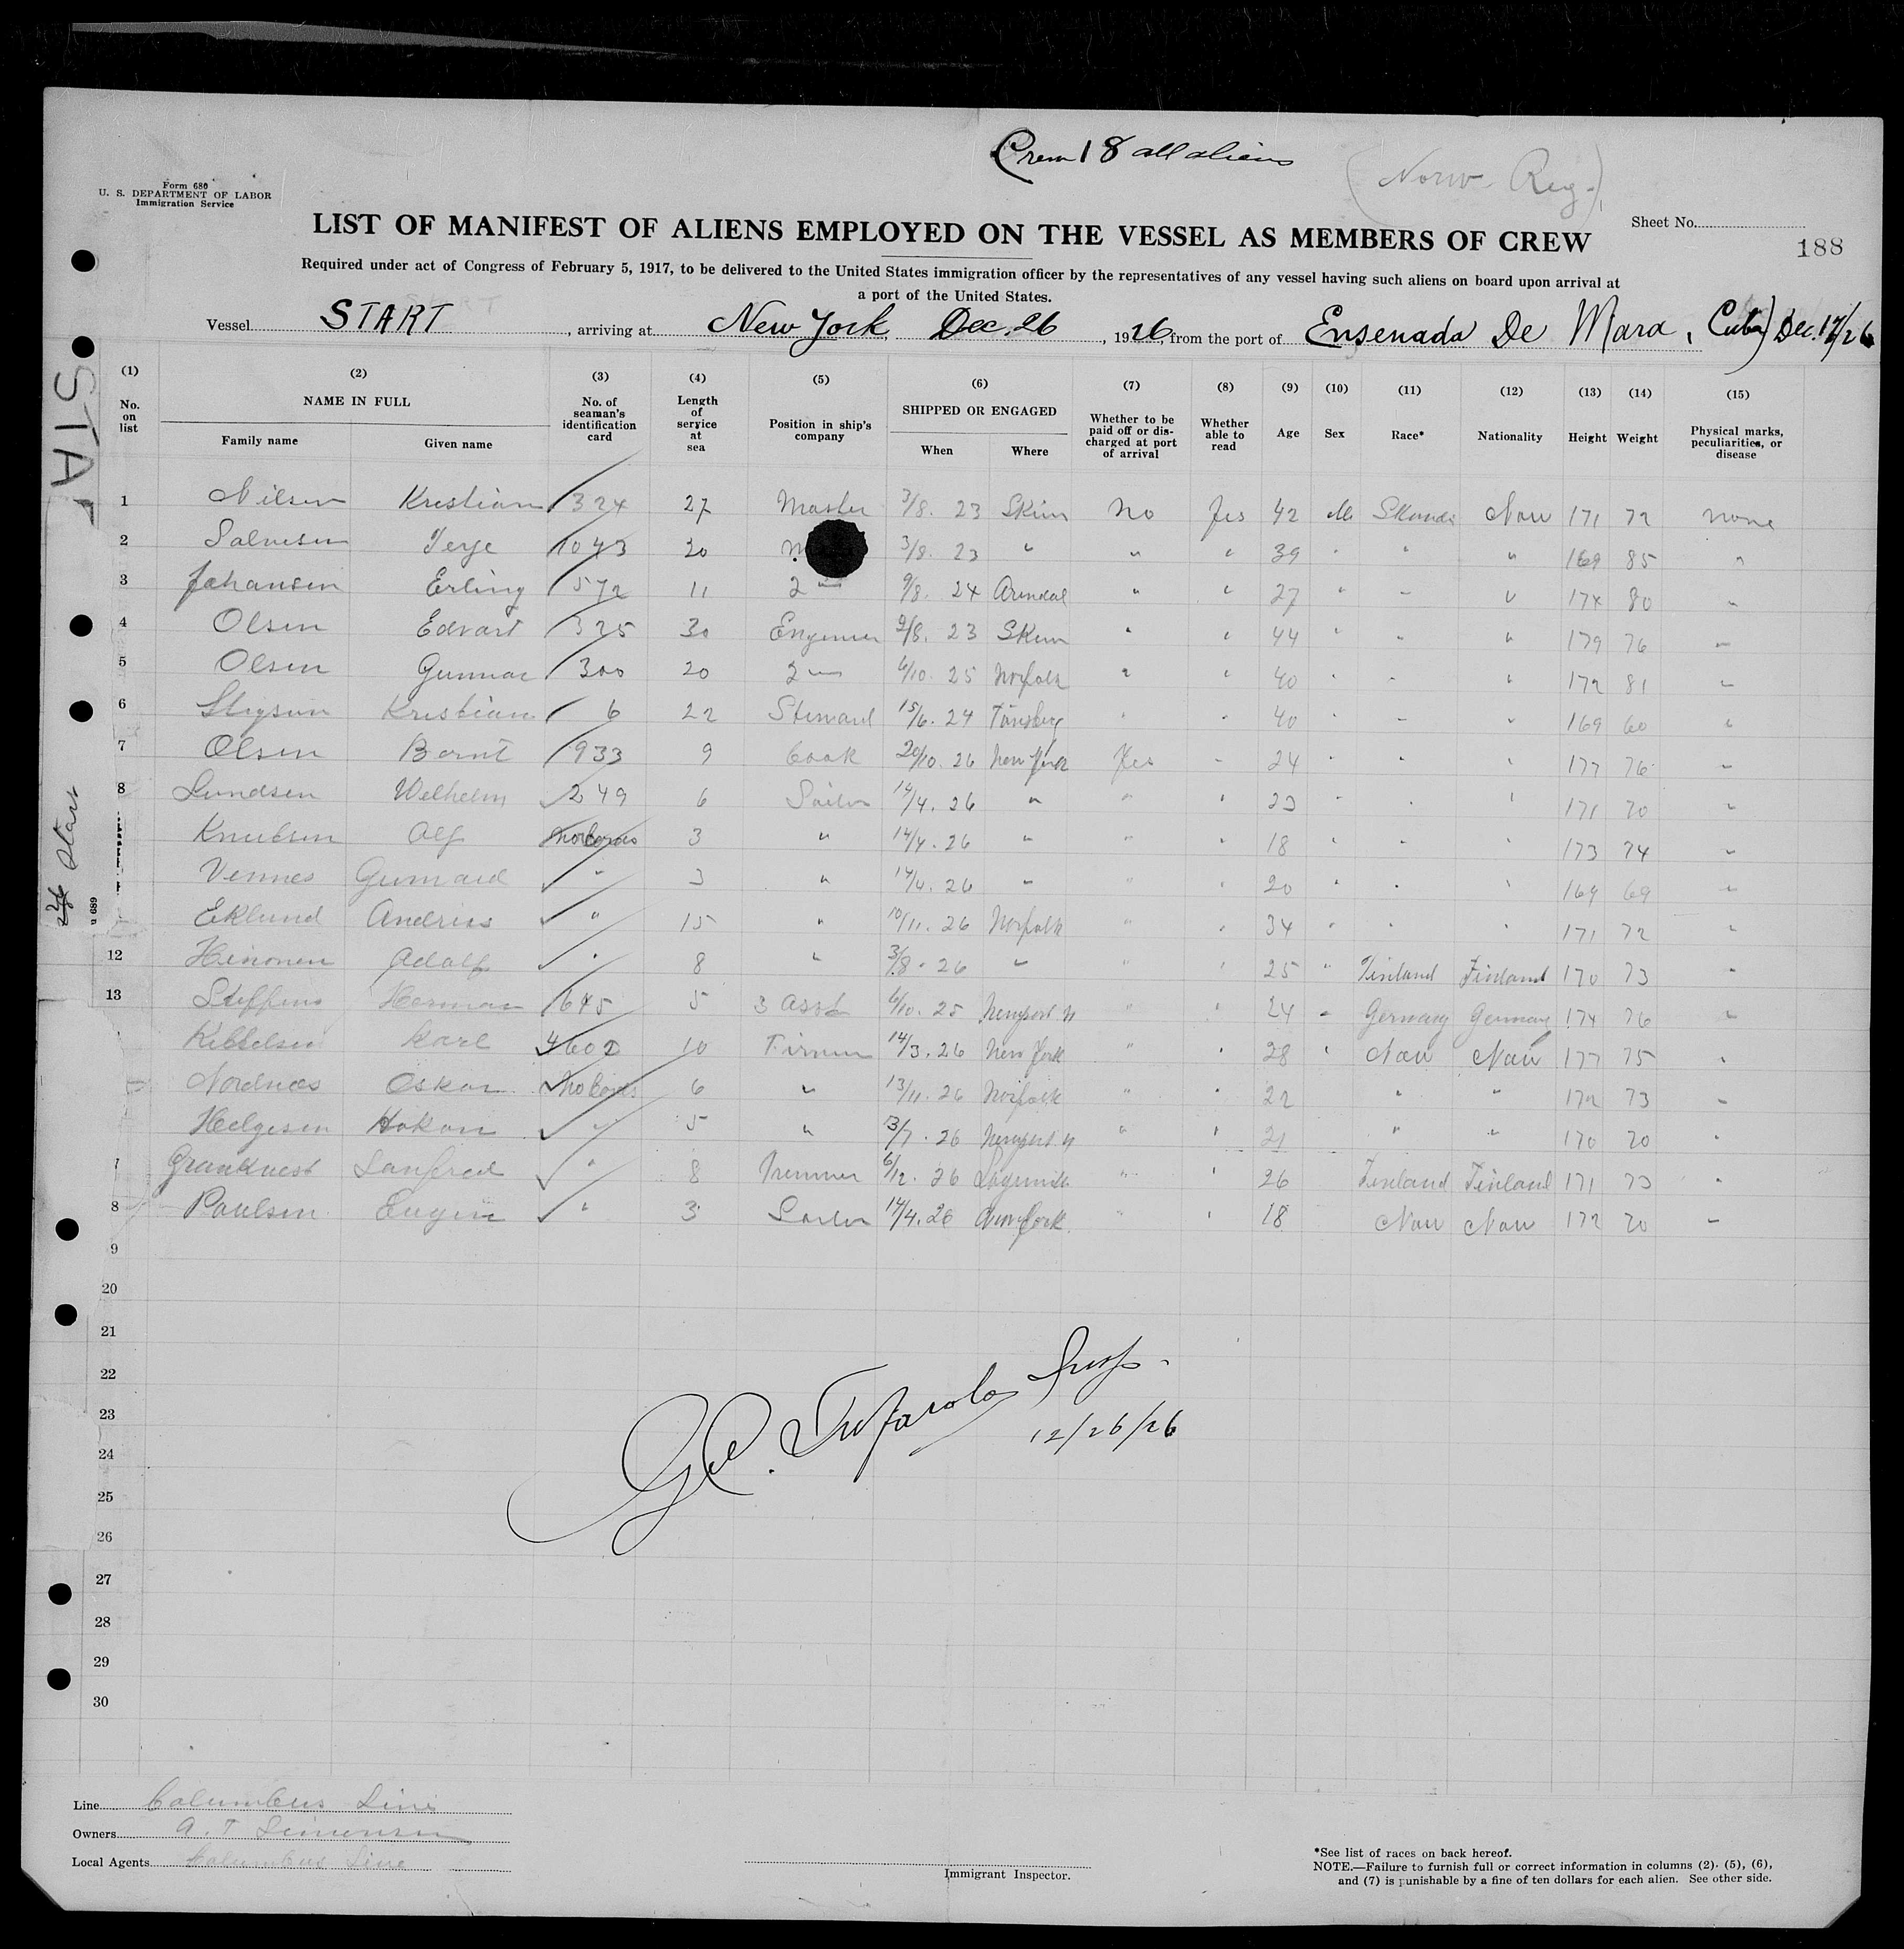 Crew 18 all aliens
(Norw. Reg.)
Form 680
U. S. DEPARTMENT OF LABOR
Immigration Service
Sheet No.
188
LIST OF MANIFEST OF ALIENS EMPLOYED ON THE VESSEL AS MEMBERS OF CREW
Required under act of Congress of February 5, 1917, to be delivered to the United States immigration officer by the representatives of any vessel having such aliens on board upon arrival at
a port of the United States.
Vessel START, arriving at New York, Dec. 26, 1926, from the port of Ensenada De Mara, Cuba) Dec. 17/26
(1) (2) (3) (4) (5) (6) (7) (8) (9) (10) (11) (12) (13) (14) (15)
No. on list NAME IN FULL Family name Given name No. of seaman's identification card Length of service at sea Position in ship's company SHIPPED OR ENGAGED When Where Whether to be paid off or discharged at port of arrival Whether able to read Age Sex Race* Nationality Height Weight Physical marks, peculiarities, or disease
1 Nilsen Kristian 324 27 Master 3/8. 23 Skien No Yes 42 M Skandi Nor 171 72 none
2 Salvesen Terje 1043 20 3/8. 23 " " " 39 " " " 169 85 "
3 Johansen Erling 572 11 2 " 9/8. 24 Arendal " " 27 " " " 174 80 "
4 Olsen Edvart 325 30 Engineer 2/8. 23 Skien " " 44 " " " 179 76 "
5 Olsen Gunnar 300 20 2 " 6/10. 25 Norfolk " " 40 " " " 172 81 "
6 Kristian 6 22 Steward 15/6. 24 Tönsberg " " 40 " " " 169 60 "
7 Olsen Bernt 933 9 Cook 20/10. 26 New York Yes " 24 " " " 177 76 "
8 Lundsen Wilhelm 249 6 Sailor 14/4. 26 " " " 23 " " " 171 70
Knudsen Alf 3 " 14/4. 26 " " " 18 " " " 173 74 "
Vennes 3 " 14/4. 26 " " " 20 " " " 169 69 "
Eklund Andrias " 15 " 10/11. 26 Norfolk " " 34 " " " 171 72 "
12 Heinonen Adolf " 8 " 3/8. 26 " " " 25 " Finland Finland 170 73 "
13 Steffens Herman 645 5 3 Asst 6/10. 25 Newport N " " 24 " Germany Germany 174 76 "
Karl 4602 10 Firman 14/3. 26 New York " " 28 " Nor Nor 177 75 "
Nordnes Oskar No Cards 6 " 13/11. 26 Norfolk " " 22 " " 172 73 "
Helgesen Hokon " 5 " 13/7. 26 Newport N " " 21 " " 170 70 "
" 8 Trimmer 6/12. 26 " " 26 Finland Finland 171 73 "
8 Paulsen Eugen " 3 Sailor 14/4. 26 New York " " 18 Nor Nor 172 70 "
9
20
21
22
23
24
25
26
27
28
29
30
Insp.
12/26/26
STA
Start
u 689
Line Columbus Line
Owners A. T. Simonsen
Local Agents Columbus Line
Immigrant Inspector.
*See list of races on back hereof.
NOTE.—Failure to furnish full or correct information in columns (2), (5), (6),
and (7) is punishable by a fine of ten dollars for each alien. See other side.